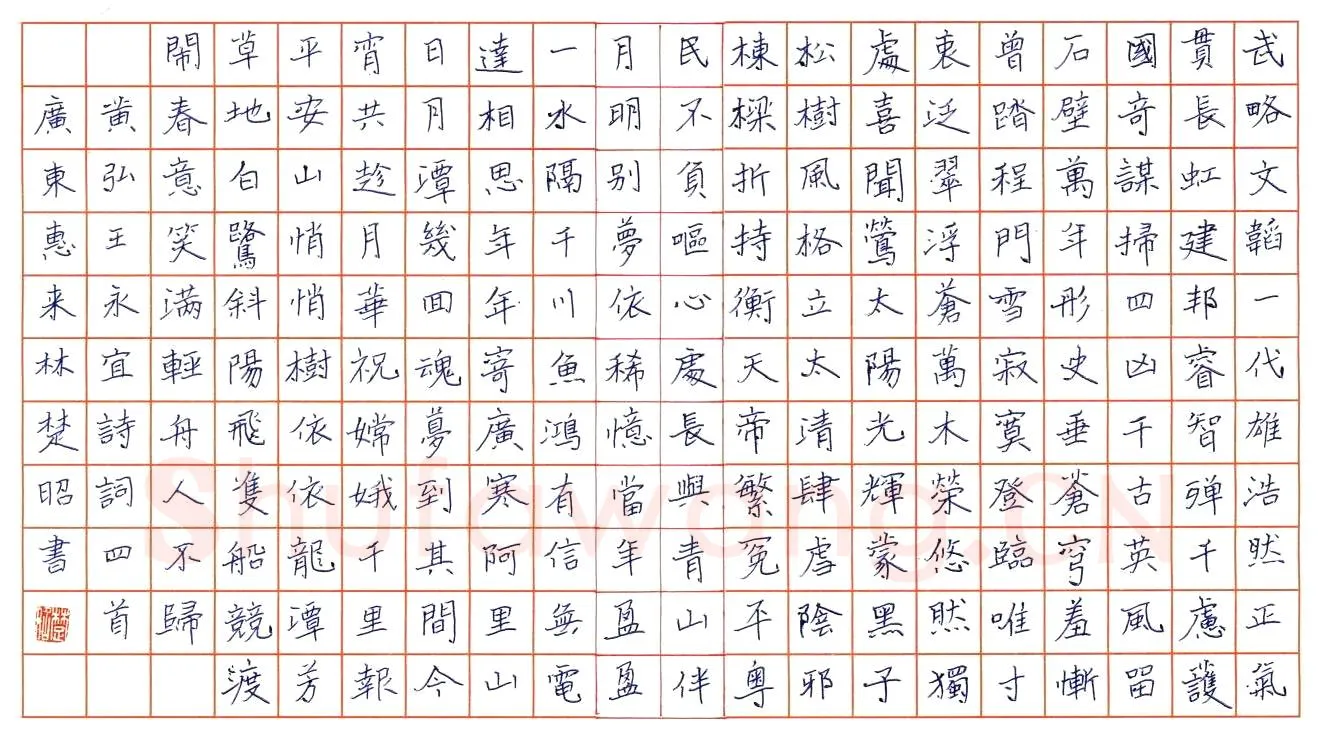 武略文韜一代雄浩然正氣
貫長虹建邦睿智殫千慮護
國奇謀掃四凶千古英風留
石壁萬年彤史垂蒼穹羞慚
曾踏程門雪寂寞登臨唯寸
衷泛翠浮蒼萬木榮悠然獨
處喜聞鶯太陽光輝蒙黑子
松樹風格立太清肆虐陰邪
棟樑折持衡天帝繁冤平粵
民不負嘔心處長與青山伴
月明別夢依稀憶當年盈盈
一水隔千川魚鴻有信無電
達相思年年寄廣寒阿里山
日月潭幾回魂夢到其間今
宵共趁月華祝嫦娥千里報
平安山悄悄樹依依龍潭芳
草地白鷺斜陽飛隻船競渡
鬧春意笑满輕舟人不歸
黃弘王永宜詩詞四首
廣東惠来林楚昭書
Shufawang.CN